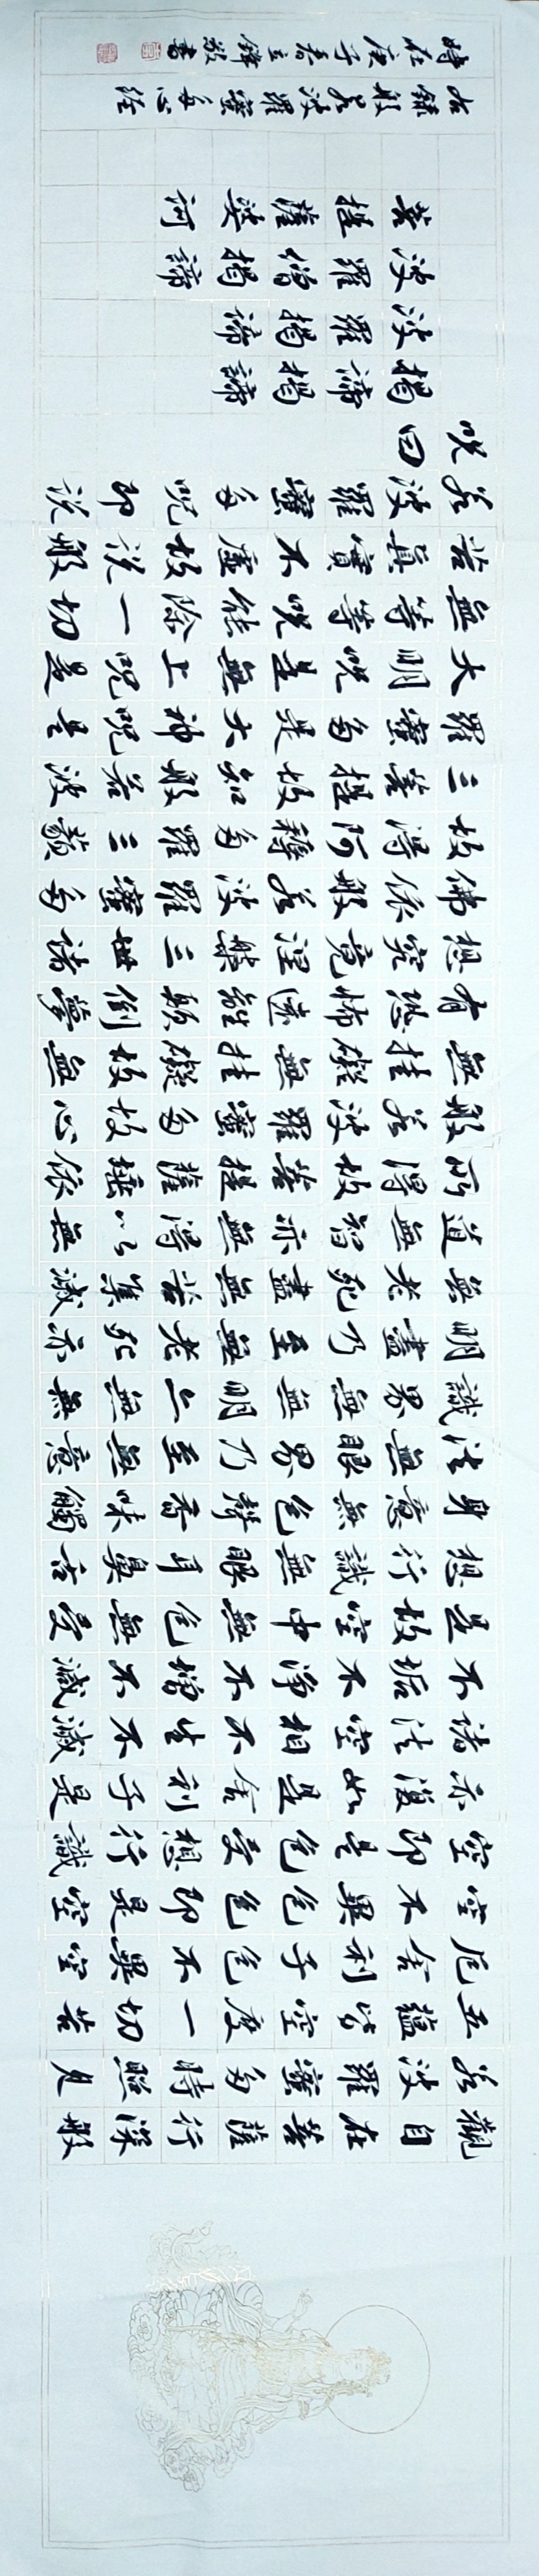 觀自在菩薩行深般
若波羅蜜多時照見
五蘊皆空度一切苦
厄舍利子色不異空
空不異色色即是空
空即是色受想行識
亦復如是舍利子是
諸法空相不生不滅
不垢不淨不增不減
是故空中無色無受
想行識無眼耳鼻舌
身意無色聲香味觸
法無眼界乃至無意
識界無無明亦無無
明盡乃至無老死亦
無老死盡無苦集滅
道無智亦無得以無
所得故菩提薩埵依
般若波羅蜜多故心
無挂礙無挂礙故無
有恐怖遠離顛倒夢
想究竟涅槃三世諸
佛依般若波羅蜜多
故得阿耨多羅三藐
三菩提故知般若波
羅蜜多是大神呪是
大明呪是無上呪是
無等等呪能除一切
苦真實不虛故說般
若波羅蜜多呪即說
呪曰
揭諦揭諦
波羅揭諦
波羅僧揭諦
菩提薩婆訶
右錄般若波羅蜜多心經
時在庚子春立鋒敬書